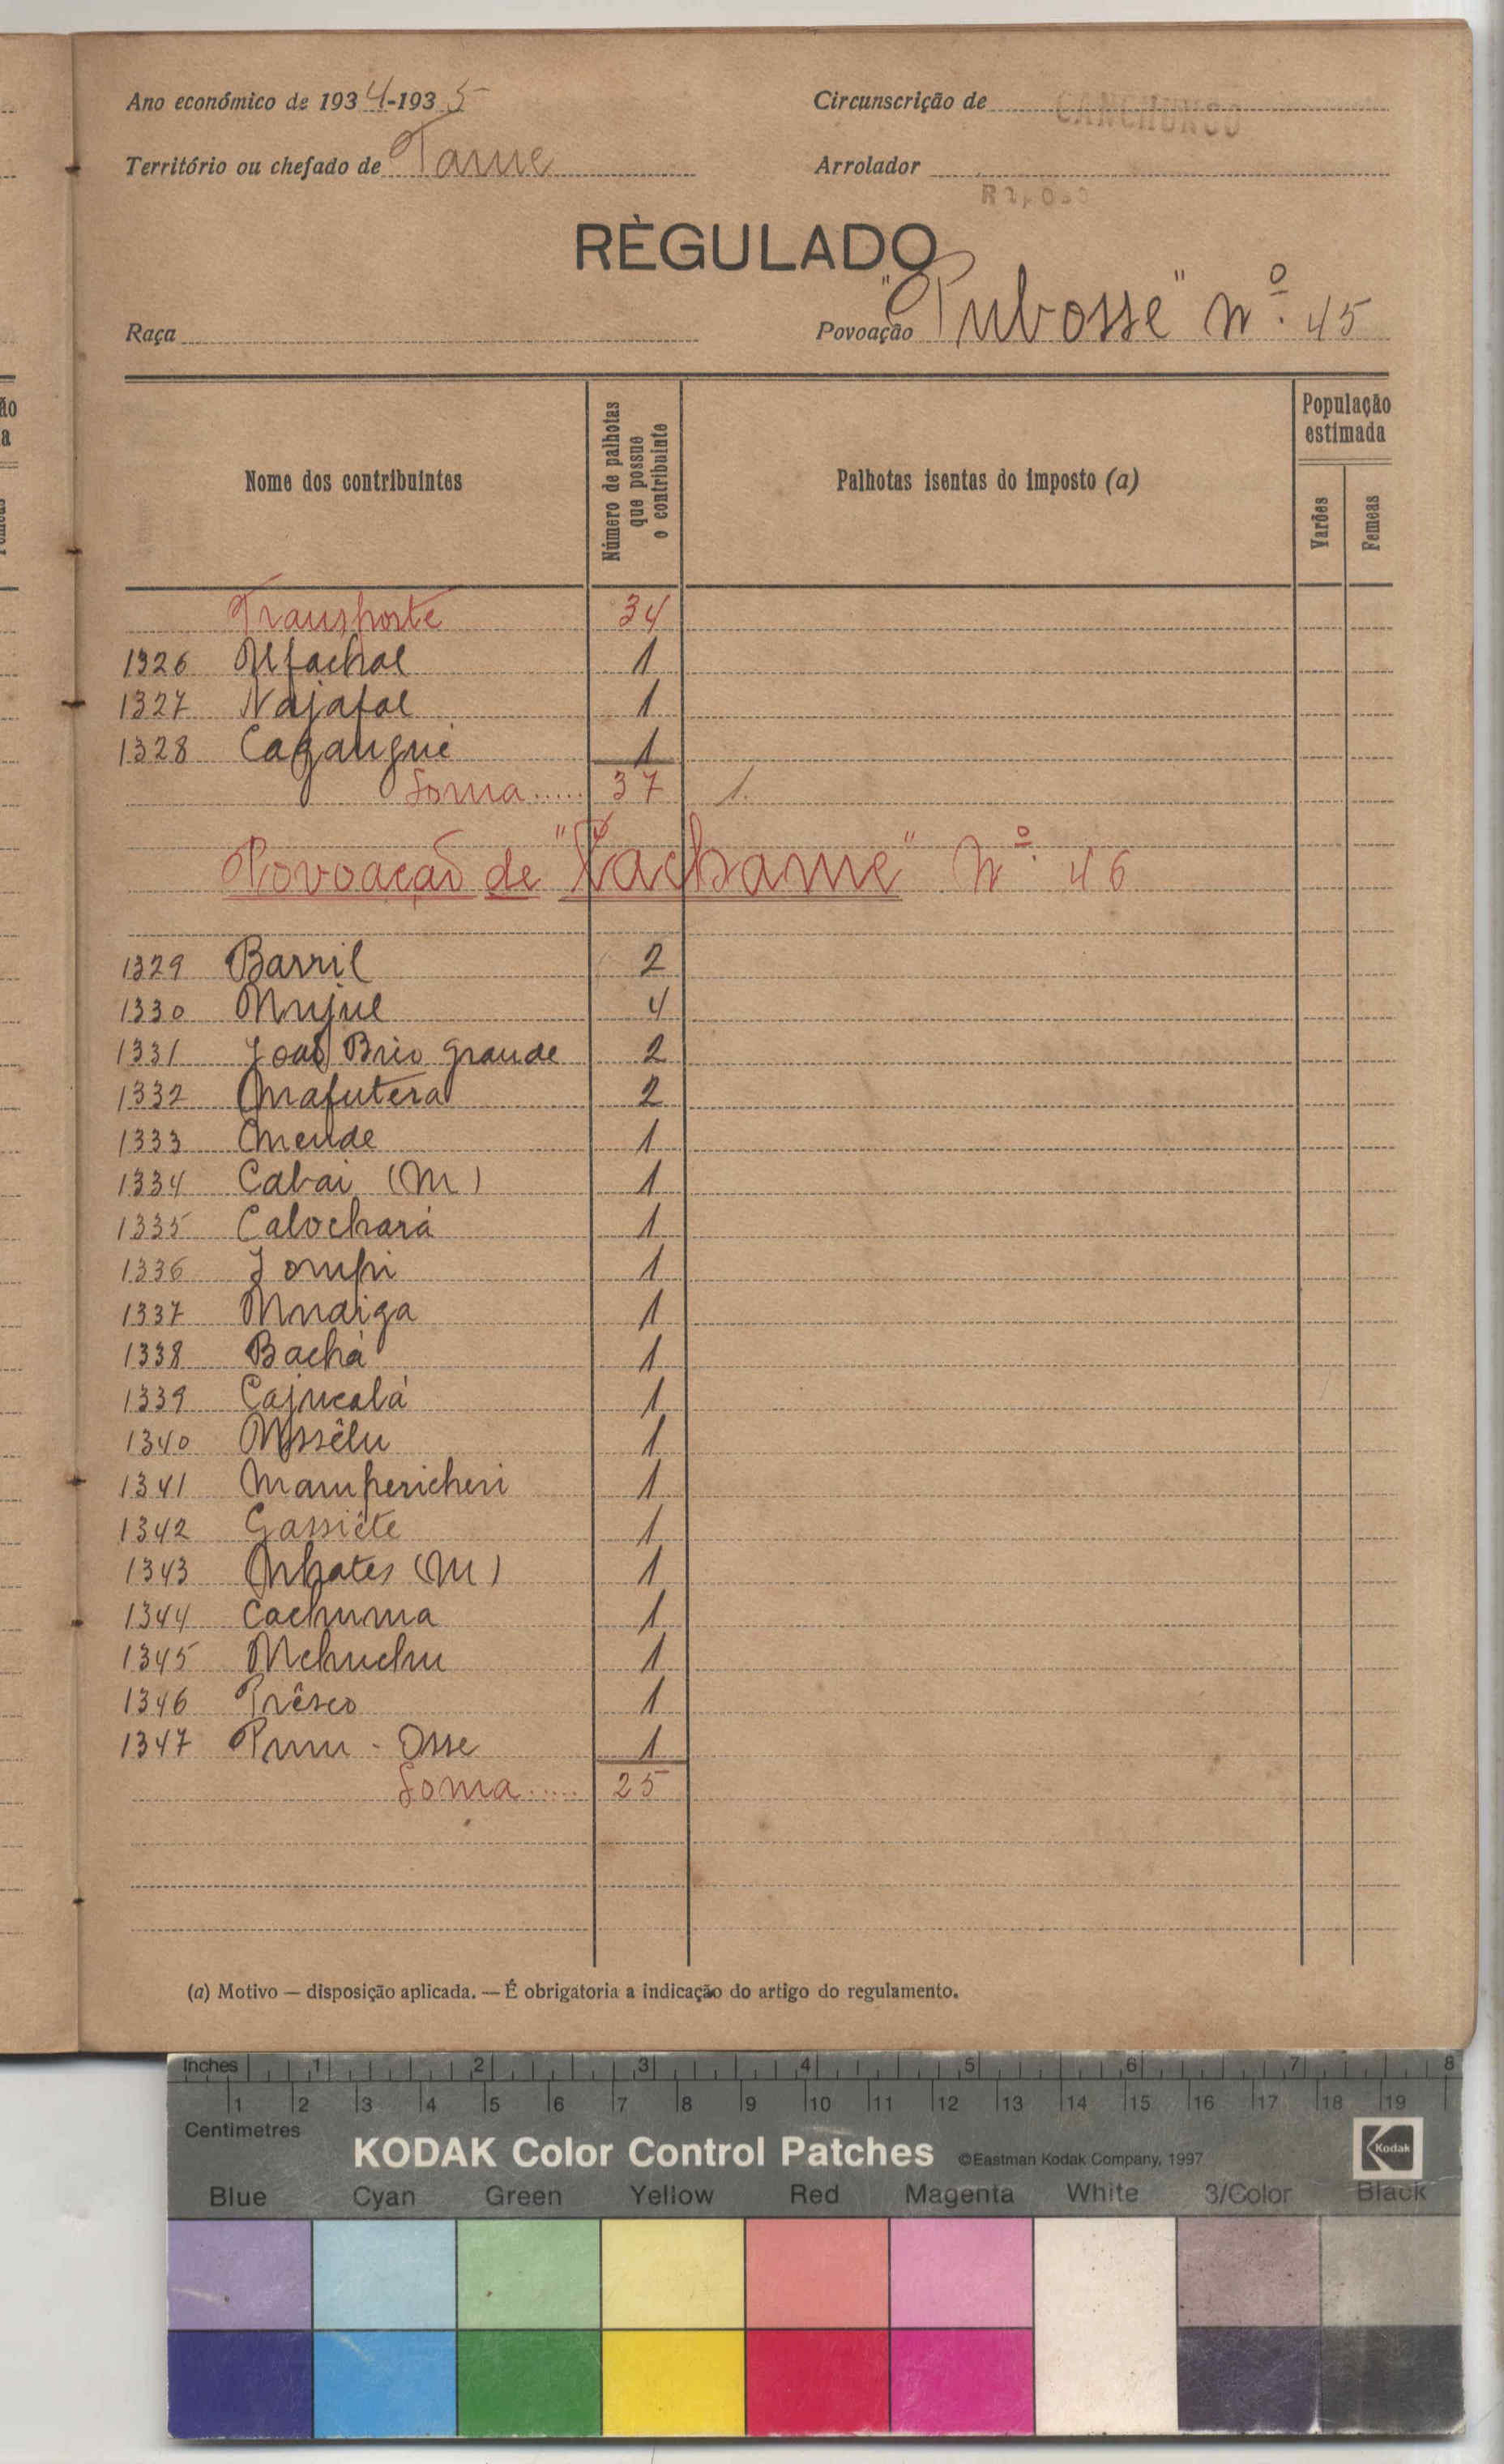 Ano económico de 1934-1935
Circunscrição de CANCHUNGO
Território ou chefado de Tame
Arrolador
RÈGULADO
Raça
Povoação "Pubosse" nº. 45
Nome dos contribuintes
Número de palhotas que possue o contribuinte
Palhotas isentas do imposto (a)
População estimada
Varões
Femeas
Transporte 34
1326 Ufachal 1
1327 Najafal 1
1328 Cagangué 1
Soma..... 37 1.
Povoação de "Cachame" Nº. 46
1329 Barril 2
1330 Mujul 4
1331 João Brio grande 2
1332 Mafutera 2
1333 Mende 1
1334 Cabai (M) 1
1335 Calochará 1
1336 Jompi 1
1337 Mnaiga 1
1338 Bachá 1
1339 Cajucalá 1
1340 Ussêlu 1
1341 Mampericheri 1
1342 Gassiête 1
1343 Inhates (M) 1
1344 Cachuma 1
1345 Mchuchu 1
1346 Prêsco 1
1347 Pnun - Osse 1
Soma..... 25
(a) Motivo — disposição aplicada. — É obrigatoria a indicação do artigo do regulamento.
Inches 1 2 3 4 5 6 7 8
1 2 3 4 5 6 7 8 9 10 11 12 13 14 15 16 17 18 19
Centimetres
KODAK Color Control Patches ©Eastman Kodak Company, 1997 Kodak
Blue Cyan Green Yellow Red Magenta White 3/Color Black